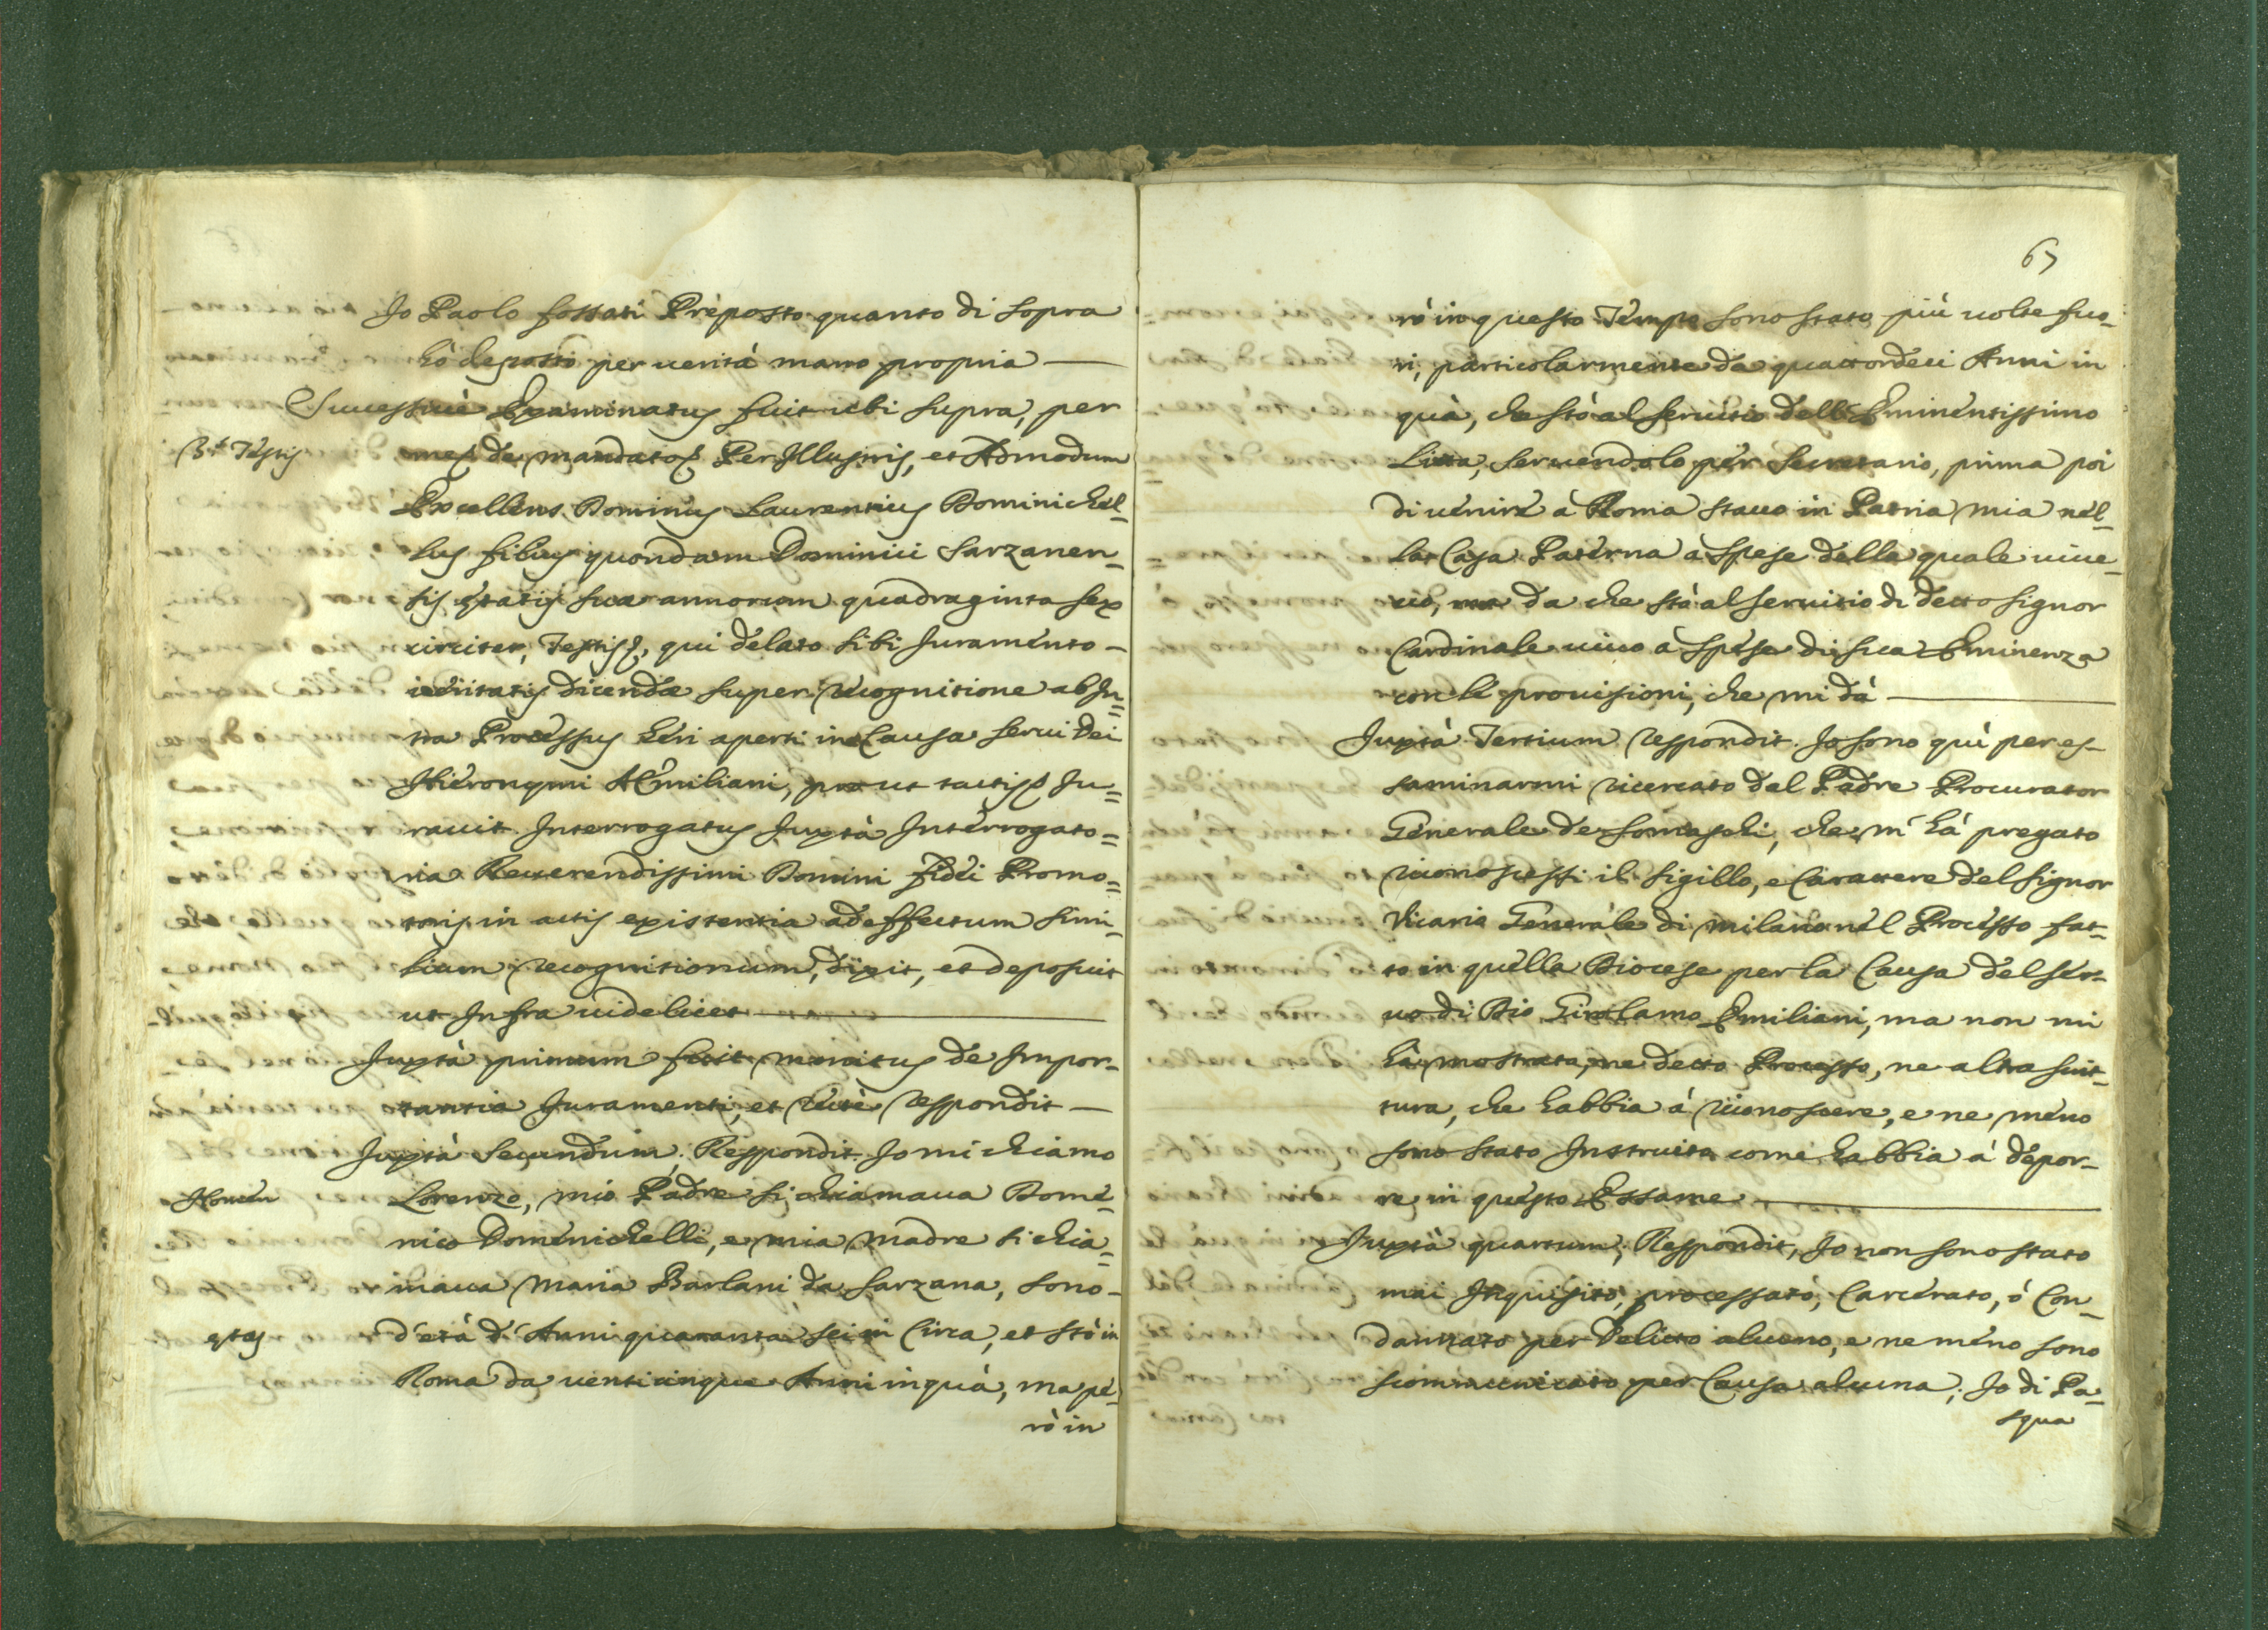 Jo Paolo fossati Preposto quanto di sopra
hò deposto per uerità mano propria
Successiuè Examinatus fuit ubi supra, per
3.s Testis
mes de mandato Per Jllustris, et Admodum
Excellens Dominus Laurentius Dominichel=
lus filius quondam Dominici Sarzanen=
sis ętatis suæ annorum quadraginta sex
circiter, Testis, qui delato sibi Juramento
ueritatis dicendæ super recognitione ab In=
tra Processus heri aperti in Causa Serui Dei
Hieronymi AEmiliani, prout tactis Ju=
rauit. Interrogatus Juxtà Interrogato=
ria Reuerendissimi Domini fidei Promo=
toris in actis existentia ad effectum simi=
lium recognitionum, dixit, et deposuit
ut Infra uidelicet
Juxtà primum fuit monitus de Impor-
tantia Juramenti, et rectè respondit
Juxtà Secundum, Respondit. Jo mi chiamo
Nomen
Lorenzo, mio Padre si chiamaua Dome=
nico Domenichelli, e mia Madre si chia=
maua Maria Barlani da Sarzana, sono
ętas
d'età d'Anni quaranta sei in Circa, et stò in
Roma da uenticinque Anni in quà, ma pe=
rò in
67
rò in questo Tempo sono stato più uolte fuo=
ri, particolarmente da quattordeci Anni in
quà, che stò al seruitio dell'Eminentissimo
Litta, seruendolo per Secretario, prima poi
di uenire à Roma stauo in Patria mia nel=
la Casa Paterna a spese della quale uiue=
uo, ma da che stò al seruitio di detto Signor
Cardinale uiuo à spese di sua Eminenza
con le prouisioni, che mi dà
Juxtà Tertium respondit. Jo sono quì per es-
saminarmi ricercato dal Padre Procurator
Generale de Somaschi, che m'hà pregato
riconoscessi il sigillo, e Carattere del Signor
Vicario Generale di Milano nel Processo fat=
to in quella Diocese per la Causa del Ser-
uo di Dio Girolamo Emiliani, ma non mi
hà mostrato, ne detto Processo, ne altra scrit=
tura, che habbia à riconoscere, e ne meno
sono stato Instruito come habbia à depor-
re in questo Essame
Juxtà quartum, Respondit, Jo non sono stato
mai Inquisito, processato, Carcerato, ò Con=
dannato per Delitto alcuno, e ne meno sono
scommunicato per Causa alcuna; Jo di Pa=
squa